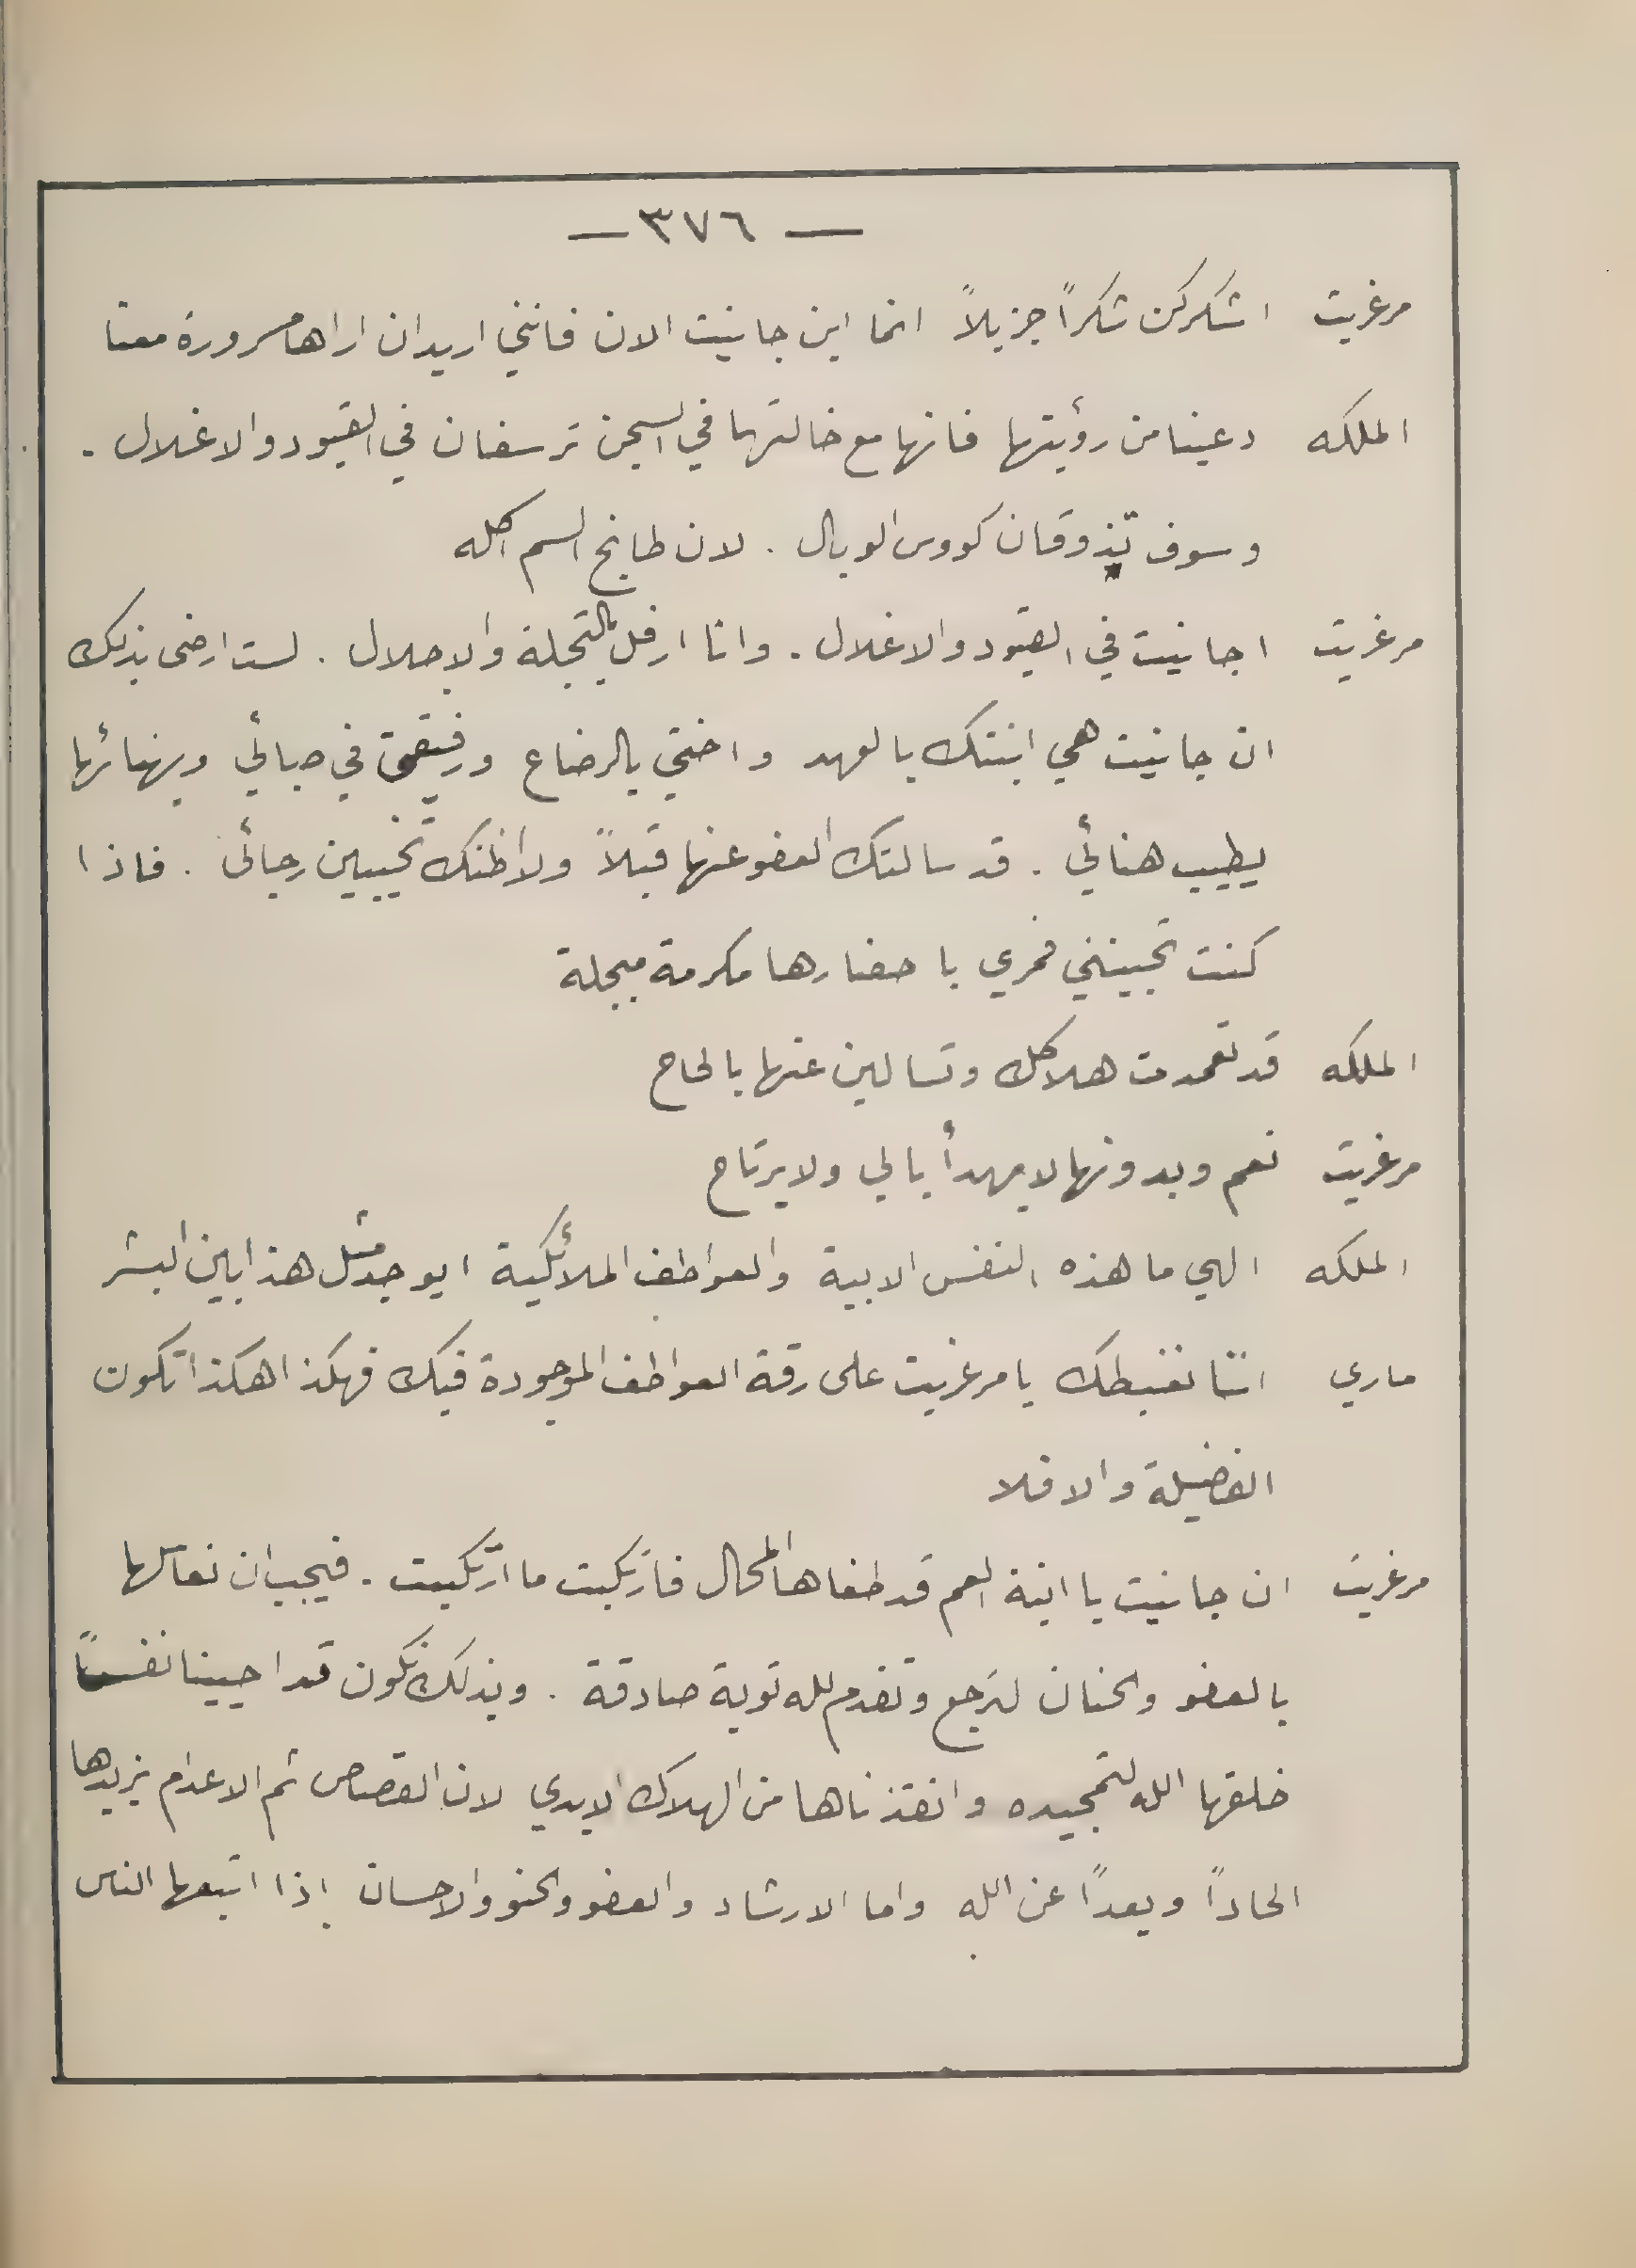 — ٣٧٦ —
مرغريت اشكركن شكراً جزيلاً انما اين جانيت الان فانني اريد ان اراها مسرورة معنا
الملكه دعينا من رؤيتها فانها مع خالتها في السجن ترسفان في القيود والاغلال .
وسوف تذوقان كووس الوبال . لان طابخ السم اكله
مرغريت اجانيت في القيود والاغلال . وانا ارفل بالتجلة والاجلال . لست ارضى بذلك
ان جانيت هي ابنتك بالعهد واختي بالرضاع ورفيقتي في صبائي وبهنائها
يطيب هنائي . قد سالتك العفو عنها قبلاً ولا اظنك تخيبين رجائي . فاذا
كنت تحبينني فمري باحضارها مكرمة مبجلة
الملكه قد تعمدت هلاكك وتسالين عنها بالحاح
مرغريت نعم وبدونها لا يهدأ بالي ولا يرتاح
الملكه الهي ما هذه النفس الابية والعواطف الملائكية ايوجد مثل هذا بين البشر
ماري اننا نغبطك يا مرغريت على رقة العواطف الموجودة فيك فهكذا هكذا تكون
الفضيلة والا فلا
مرغريت ان جانيت يا ابنة العم قد طغاها المحال فارتكبت ما ارتكبت . فيجب ان نعاملها
بالعفو والحنان لترجع وتقدم لله توبة صادقة . وبذلك نكون قد احيينا نفساً
خلقها الله لتمجيده وانقذناها من الهلاك الابدي لان القصاص ثم الاعدام يزيدها
الحاداً وبعداً عن الله واما الارشاد والعفو والحنو والاحسان اذا اتبعها الناس